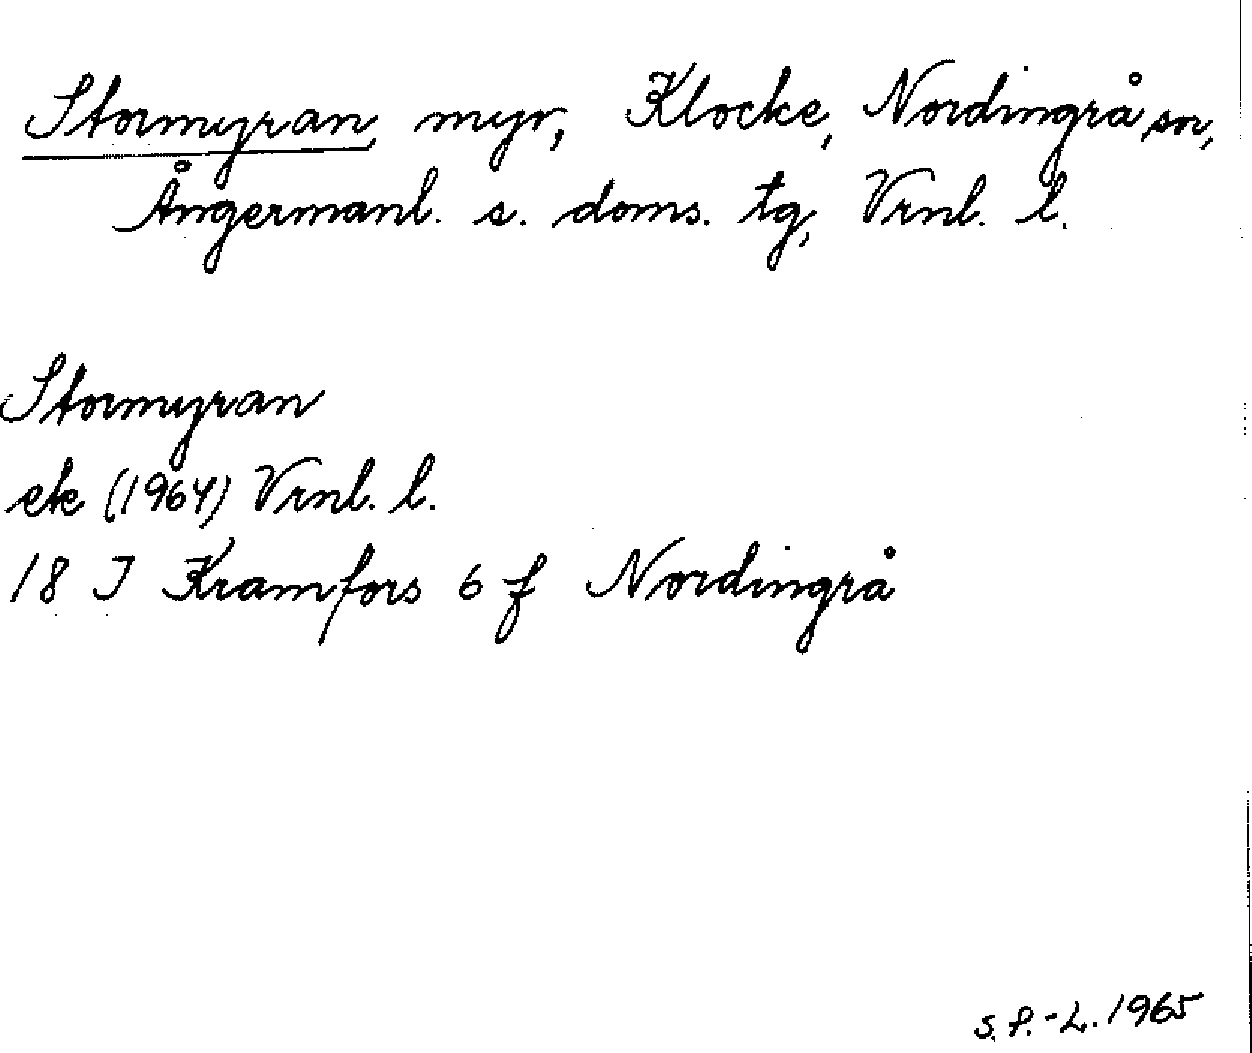 Stormyran, myr, Klocke, Nordingrå sn,
Ångermanl. s. doms. tg, Vrnl. l.
Stormyran
ek (1964) Vrnl. l.
18 I Kramfors 6 f Nordingrå
S.P.-L. 1965